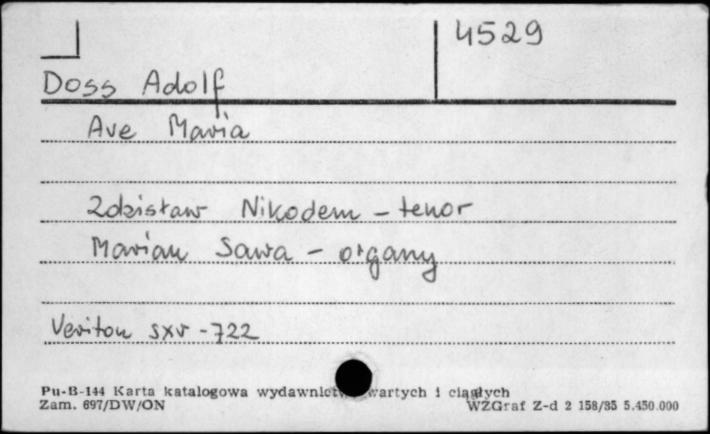 4529
Doss Adolf
Ave Maria
Zdzisław Nikodem - tenor
Marian Sawa - organy
Veriton sxv -722
Pu-B-144 Karta katalogowa wydawnictw zwartych i ciągłych
Zam. 697/DW/ON WZGraf Z-d 2 158/85 5.450.000